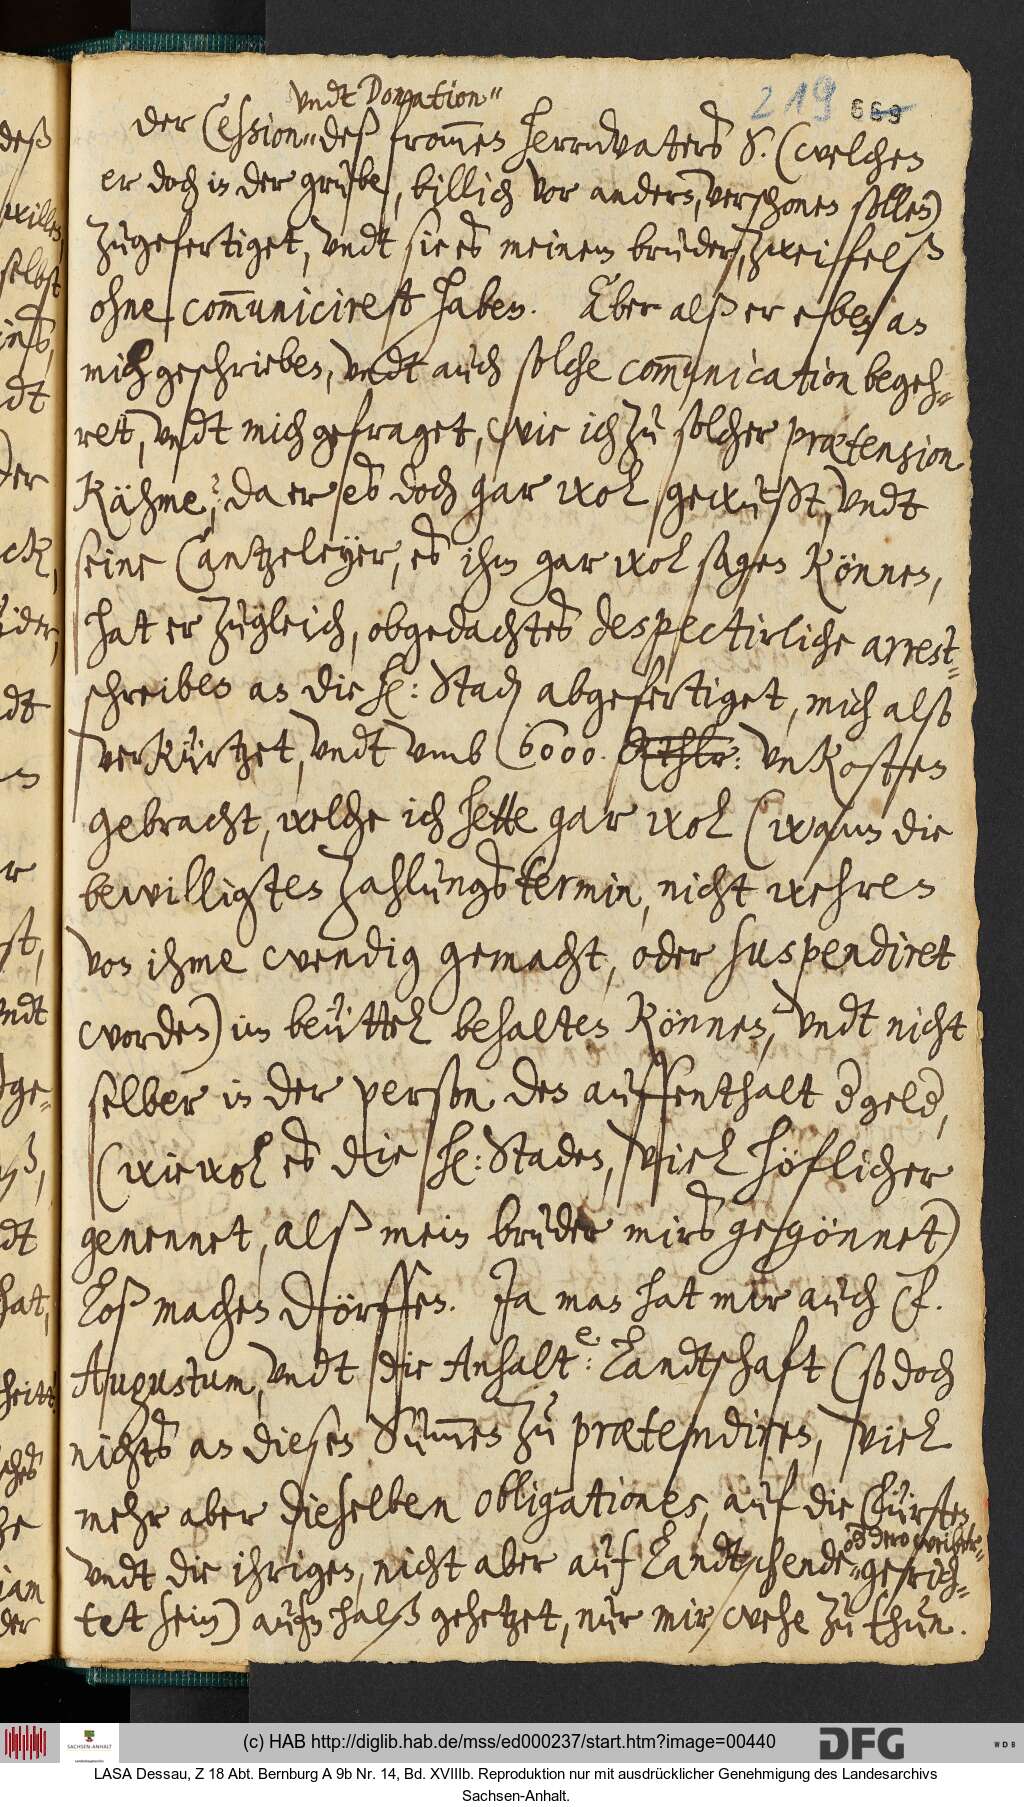 219 669
vndt Donation"
der Cession" deß from̅en Herrnvaters S. (welchen
er doch in der grube, billich vor andern, verschonen sollen)
zugefertiget, vndt sie es meinem bruder, zweiffelß
ohne com̅uniciret haben. Eber alß er eben an
mich geschrieben, vndt auch solche com̅unication begeh-
ret, vndt mich gefraget, wie ich zu solcher prætension
Kähme,? da er es doch gar wol gewußt, vndt
seine Cantzeleyer, es ihm gar wol sagen können,
hat er zugleich, obgedachtes despectirliche arrest-
schreiben an die H: Staden abgefertiget, mich alß
verkürtzet, vndt vmb 6000. Rthlr: vnkosten
gebracht, welche ich hette gar wol (wann die
bewilligten zahlungstermin, nicht wehren
von ihme wendig gemacht, oder suspendiret
worden) im beüttel behalten können, vndt nicht
selber in der person den auffenthalt d geld,
(wiewol es die H: Staden, viel höflicher
genennet, alß mein bruder mirs gegönnet)
Loß machen dörffen. Ja man hat mir auch F.
Augustum, vndt die Anhalt.e: Landtschaft (so doch
nichts an diesen Sum̅en zu prætendiren, viel
mehr aber dieselben obligationes, auf die Fürsten,
vndt die ihrigen, nicht aber auf Landtschende" gerich-
tet sein) aufn halß gehetzet, nur mir wehe zu thun.
(c) HAB http://diglib.hab.de/mss/ed000237/start.htm?image=00440
SACHSEN-ANHALT
DFG
WDB
LASA Dessau, Z 18 Abt. Bernburg A 9b Nr. 14, Bd. XVIIIb. Reproduktion nur mit ausdrücklicher Genehmigung des Landesarchivs
Sachsen-Anhalt.